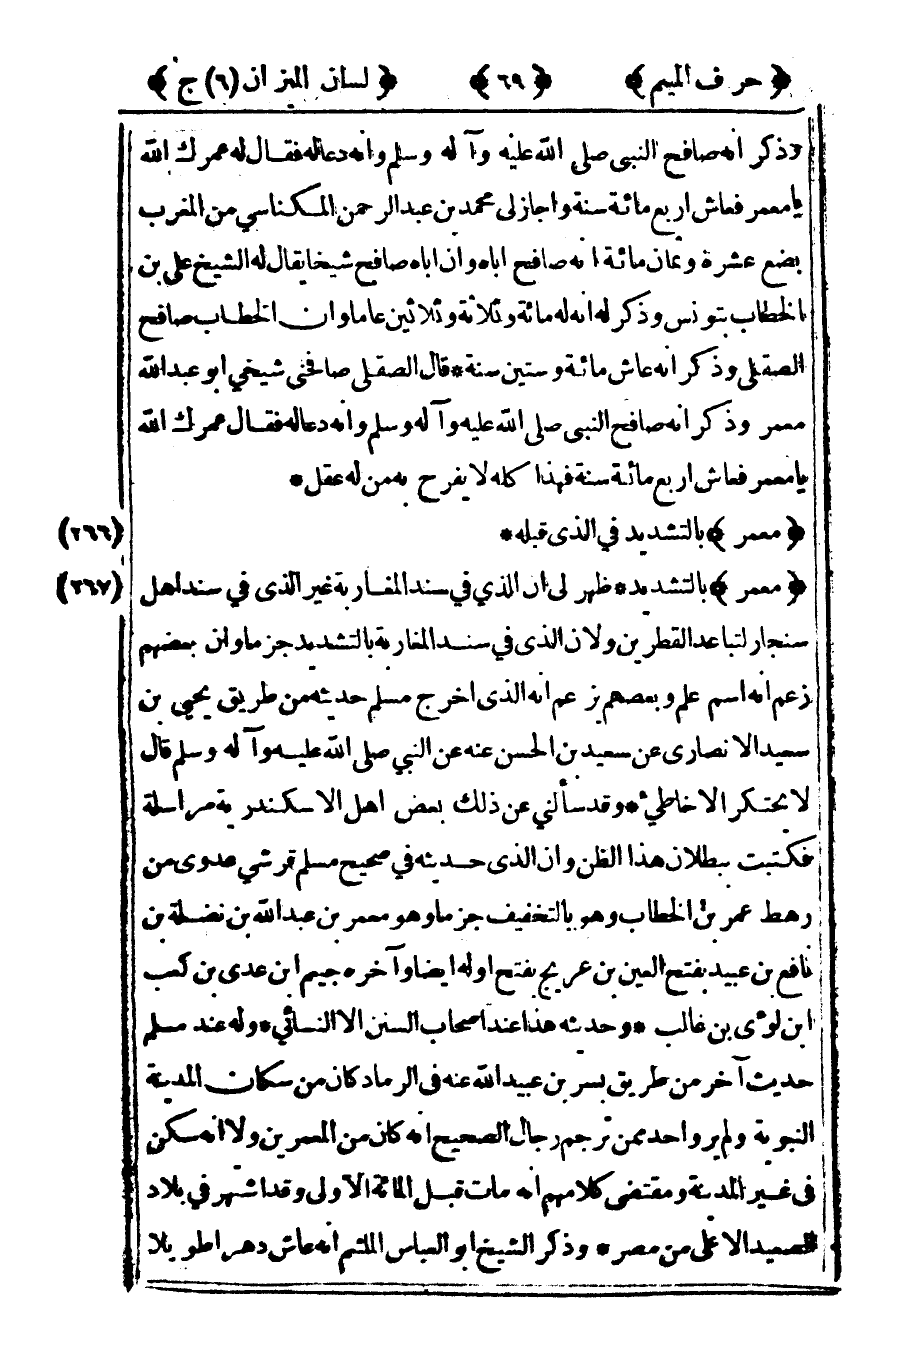 ﴿ حرف الميم ﴾ ﴿ ٦٩ ﴾ ﴿ لسان الميزان (٦) ج ﴾
وذكر انه صافح النبي صلى الله عليه وآله وسلم وانه دعاله فقال له عمرك الله
يا معمر فعاش اربع مائة سنة واجاز لى محمد بن عبد الرحمن المكناسي من المغرب
بضع عشرة وثمان مائة انه صافح اباه وان اباه صافح شيخا يقال له الشيخ على بن
الخطاب بتونس وذكر له انه له مائة وثلاثة وثلاثين عاما وان الخطاب صافح
الصقلى وذكر انه عاش مائة وستين سنة * قال الصقلى صافحنى شيخي ابو عبد الله
معمر وذكر انه صافح النبي صلى الله عليه وآله وسلم وانه دعاله فقال عمرك الله
يا معمر فعاش اربع مائة سنة فهذا كله لا يفرح به من له عقل *
﴿ معمر ﴾ بالتشديد في الذى قبله * (٢٦٦)
﴿ معمر ﴾ بالتشديد * ظهر لى ان الذي في سند المغاربة غير الذى في سند اهل (٢٦٧)
سنجار لتباعد القطرين ولان الذى في سند المغاربة بالتشديد جزما ولن بعضهم
زعم انه اسم علم وبعضهم يزعم انه الذى اخرج مسلم حديثه من طريق يحيى بن
سعيد الانصارى عن سعيد بن الحسن عنه عن النبي صلى الله عليه وآله وسلم قال
لا يحتكر الاخاطئ * وقد سألني عن ذلك بعض اهل الاسكندرية مراسلة
فكتبت ببطلان هذا الظن وان الذى حديثه في صحيح مسلم قرشي عدوى من
رهط عمر بن الخطاب وهو بالتخفيف جزما وهو معمر بن عبد الله بن نضلة بن
نافع بن عبيد بفتح العين بن عريج بفتح اوله ايضا وآخره جيم ابن عدى بن كعب
ابن لوئى بن غالب * وحديثه هذا عند اصحاب السنن الا النسائي * وله عند مسلم
حديث آخر من طريق بسر بن عبيد الله عنه فى الرماد كان من سكان المدينة
النبوية ولم ير واحد ممن ترجم رجال الصحيح انه كان من المعمرين ولا انه سكن
فى غير المدينة ومقتضى كلامهم انه مات قبل المائة الاولى وقد اشتهر في بلاد
الصعيد الاعلى من مصر * وذكر الشيخ ابو العباس الملثم انه عاش دهرا طويلا